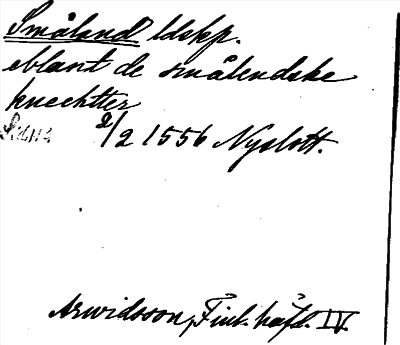 Småland ldskp.
eblant de smålendske
knechtter
2/2 1556 Nyslott.
Arwidsson, Finl. häfd. IV.